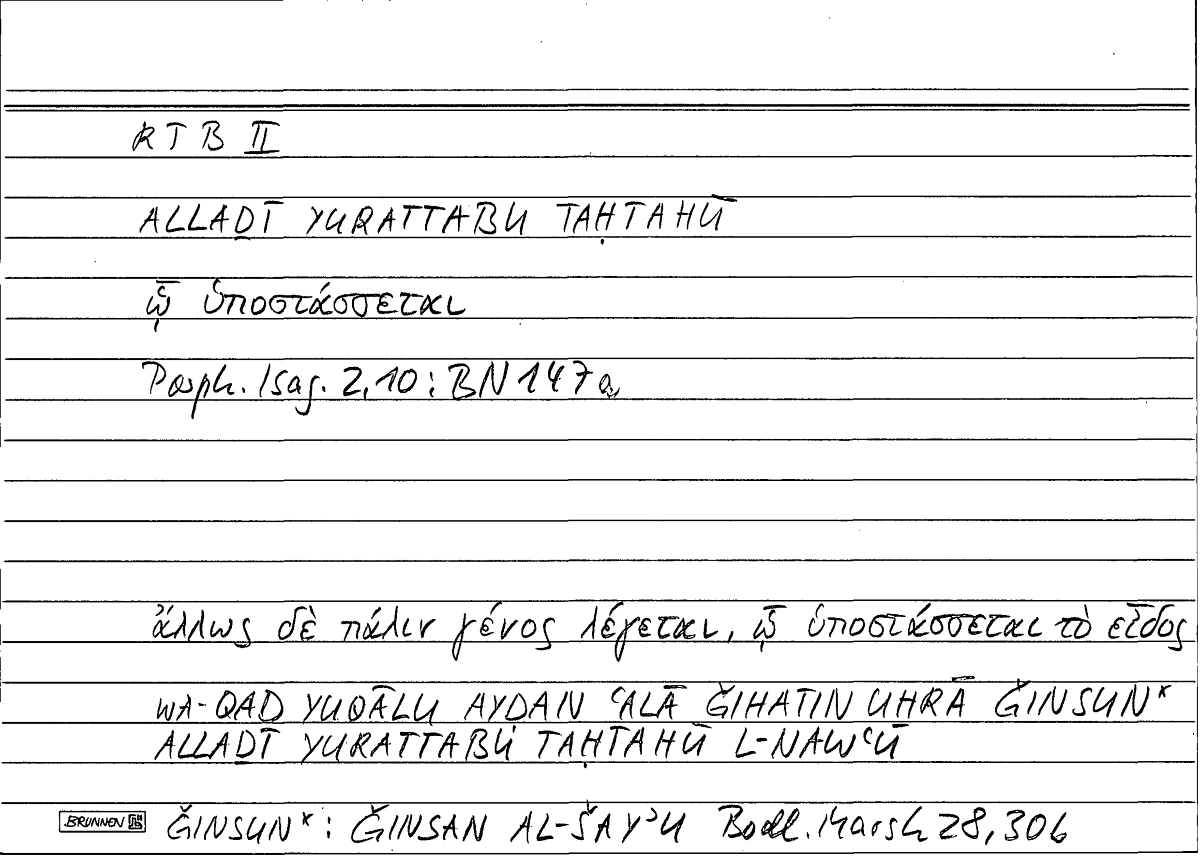 RTB II
ALLAḎĪ YURATTABU TAḤTAHŪ
ᾧ ὑποστάσσεται
Porph. Isag. 2,10: BN 147a
ἄλλως δὲ πάλιν γένος λέγεται, ᾧ ὑποστάσσεται τὸ εἶδος
WA-QAD YUQĀLU AYḌAN ʿALĀ ǦIHATIN UḪRĀ ǦINSUN*
ALLAḎĪ YURATTABU TAḤTAHŪ L-NAWʿU
BRUNNEN ǦINSUN*: ǦINSAN AL-ŠAYʾU Bodl. Marsh 28,30b